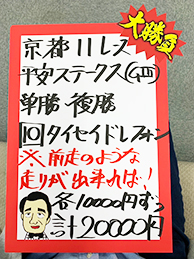 大勝負
京都11レース
平安ステークス(G3)
単勝・複勝
10 タイセイドレフォン
※前走のような
走りが出来れば!
各10000円ずつ
計20000円